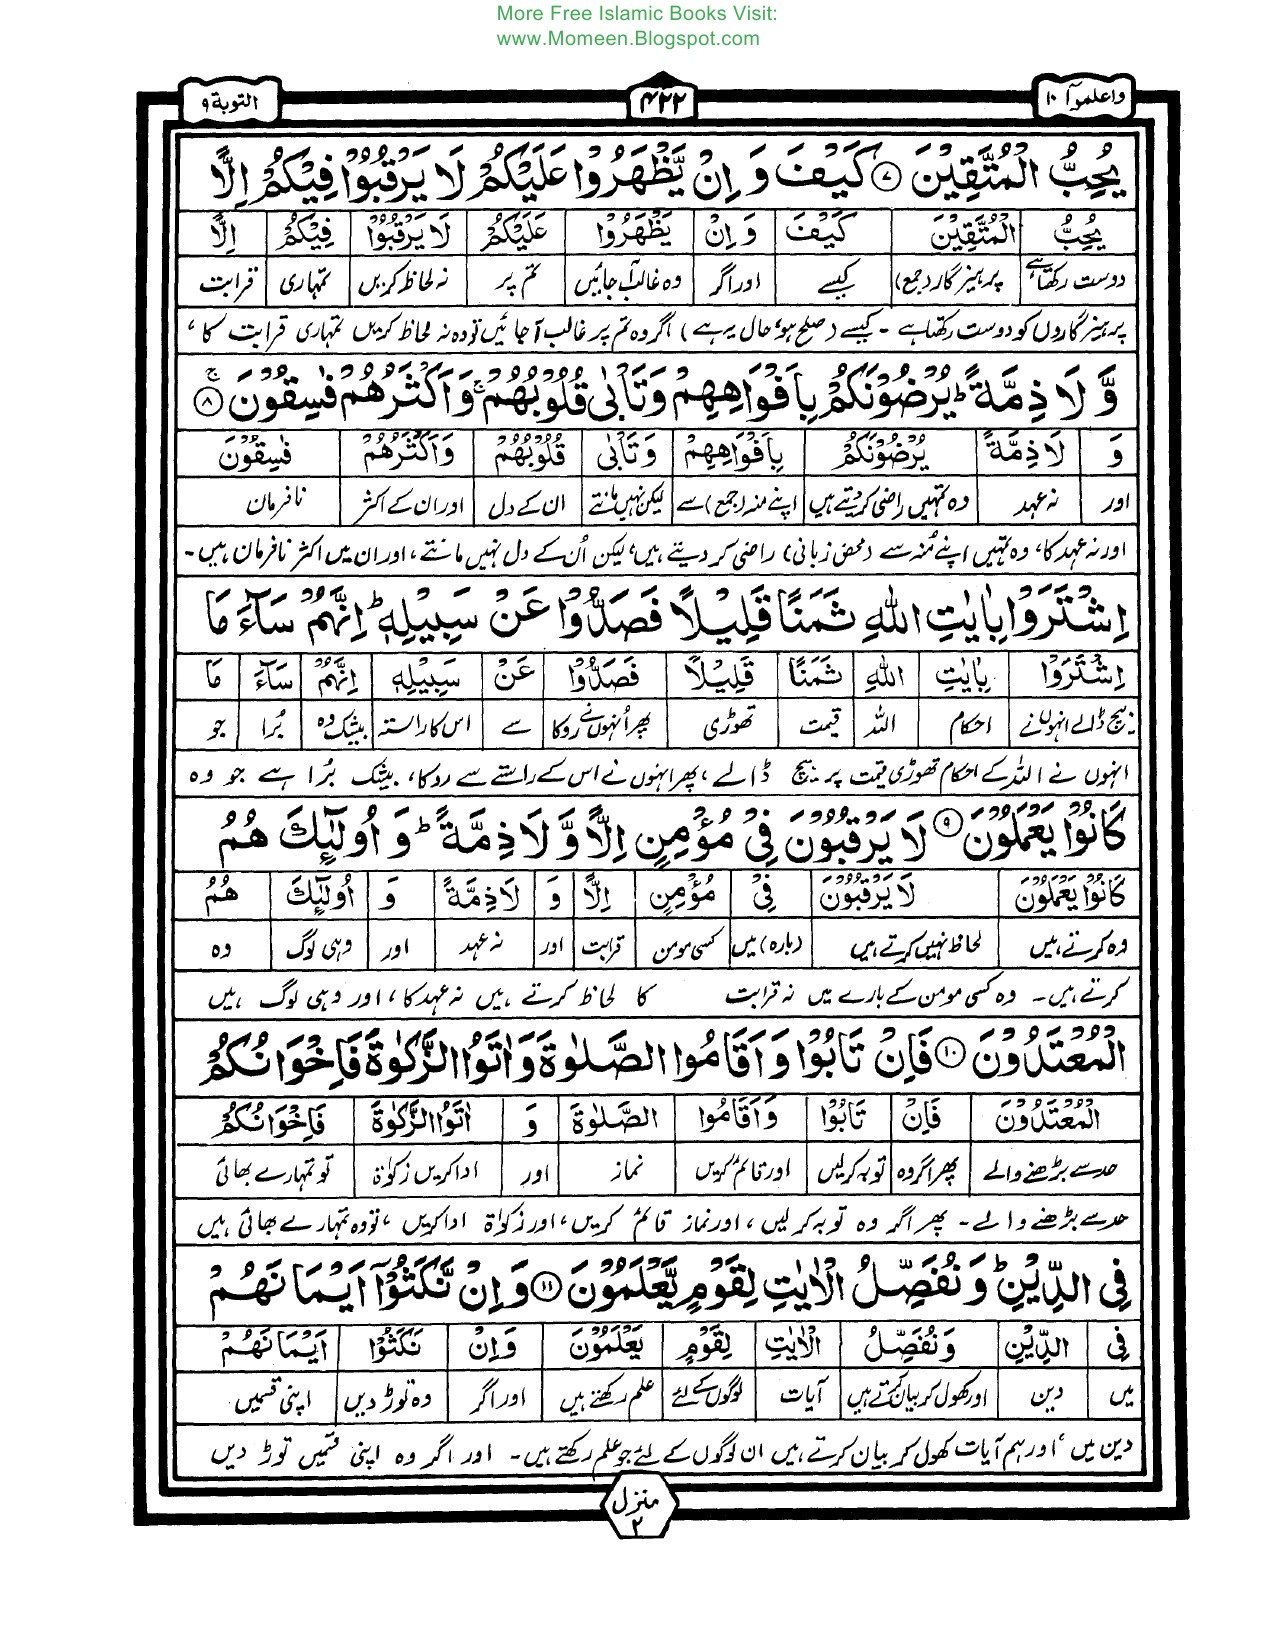 More Free Islamic Books Visit:
www.Momeen.Blogspot.com
واعلموآ ١٠ ۴۲۲ التوبة ۹
يُحِبُّ الْمُتَّقِيْنَ ۷ كَيْفَ وَ اِنْ يَّظْهَرُوْا عَلَيْكُمْ لَا يَرْقُبُوْا فِيْكُمْ اِلًّا
يُحِبُّ الْمُتَّقِيْنَ كَيْفَ وَ اِنْ يَّظْهَرُوْا عَلَيْكُمْ لَا يَرْقُبُوْا فِيْكُمْ اِلًّا
دوست رکھتا ہے پرہیزگار (جمع) کیسے اور اگر وہ غالب آجائیں تم پر نہ لحاظ کریں تمہاری قرابت
پرہیزگاروں کو دوست رکھتا ہے ۔ کیسے (صلح ہو، حال یہ ہے) اگر وہ تم پر غالب آجائیں تو وہ نہ لحاظ کریں تمہاری قرابت کا ،
وَّ لَا ذِمَّةً ؕ يُرْضُوْنَكُمْ بِاَفْوَاهِهِمْ وَتَاْبٰى قُلُوْبُهُمْ ۚ وَاَكْثَرُهُمْ فٰسِقُوْنَ ۚ ۸
وَ لَا ذِمَّةً يُرْضُوْنَكُمْ بِاَفْوَاهِهِمْ وَتَاْبٰى قُلُوْبُهُمْ وَاَكْثَرُهُمْ فٰسِقُوْنَ
اور نہ عہد وہ تمہیں راضی کر دیتے ہیں اپنے منہ (جمع) سے لیکن نہیں مانتے ان کے دل اور ان کے اکثر نافرمان
اور نہ عہد کا، وہ تمہیں اپنے مُنہ سے (محض زبانی) راضی کر دیتے ہیں، لیکن اُن کے دل نہیں مانتے، اور ان میں اکثر نافرمان ہیں۔
اِشْتَرَوْا بِاٰيٰتِ اللّٰهِ ثَمَنًا قَلِيْلًا فَصَدُّوْا عَنْ سَبِيْلِهٖ ؕ اِنَّهُمْ سَآءَ مَا
اِشْتَرَوْا بِاٰيٰتِ اللّٰهِ ثَمَنًا قَلِيْلًا فَصَدُّوْا عَنْ سَبِيْلِهٖ اِنَّهُمْ سَآءَ مَا
بیچ ڈالے انہوں نے احکام اللہ قیمت تھوڑی پھر اُنہوں نے روکا سے اس کا راستہ بیشک وہ بُرا جو
انہوں نے اللہ کے احکام تھوڑی قیمت پر بیچ ڈالے ، پھر انہوں نے اس کے راستے سے روکا، بیشک بُرا ہے جو وہ
كَانُوْا يَعْمَلُوْنَ ۹ لَا يَرْقُبُوْنَ فِيْ مُؤْمِنٍ اِلًّا وَّ لَا ذِمَّةً ؕ وَ اُولٰٓئِكَ هُمُ
كَانُوْا يَعْمَلُوْنَ لَا يَرْقُبُوْنَ فِيْ مُؤْمِنٍ اِلًّا وَ لَا ذِمَّةً وَ اُولٰٓئِكَ هُمُ
وہ کرتے ہیں لحاظ نہیں کرتے ہیں (بارہ) میں کسی مومن قرابت اور نہ عہد اور وہی لوگ وہ
کرتے ہیں۔ وہ کسی مومن کے بارے میں نہ قرابت کا لحاظ کرتے ہیں نہ عہد کا ، اور وہی لوگ ہیں
الْمُعْتَدُوْنَ ١٠ فَاِنْ تَابُوْا وَ اَقَامُوا الصَّلٰوةَ وَ اٰتَوُا الزَّكٰوةَ فَاِخْوَانُكُمْ
الْمُعْتَدُوْنَ فَاِنْ تَابُوْا وَ اَقَامُوا الصَّلٰوةَ وَ اٰتَوُا الزَّكٰوةَ فَاِخْوَانُكُمْ
حد سے بڑھنے والے پھر اگر وہ توبہ کرلیں اور قائم کریں نماز اور ادا کریں زکوٰة تو تمہارے بھائی
حد سے بڑھنے والے۔ پھر اگر وہ توبہ کرلیں ، اور نماز قائم کریں، اور زکوٰة ادا کریں ، تو وہ تمہارے بھائی ہیں
فِي الدِّيْنِ ؕ وَ نُفَصِّلُ الْاٰيٰتِ لِقَوْمٍ يَّعْلَمُوْنَ ١١ وَ اِنْ نَّكَثُوْٓا اَيْمَانَهُمْ
فِي الدِّيْنِ وَ نُفَصِّلُ الْاٰيٰتِ لِقَوْمٍ يَعْلَمُوْنَ وَ اِنْ نَكَثُوْا اَيْمَانَهُمْ
میں دین اور کھول کر بیان کرتے ہیں آیات لوگوں کے لئے علم رکھتے ہیں اور اگر وہ توڑ دیں اپنی قسمیں
دین میں ، اور ہم آیات کھول کر بیان کرتے ہیں ان لوگوں کے لئے جو علم رکھتے ہیں۔ اور اگر وہ اپنی قسمیں توڑ دیں
منزل
۲